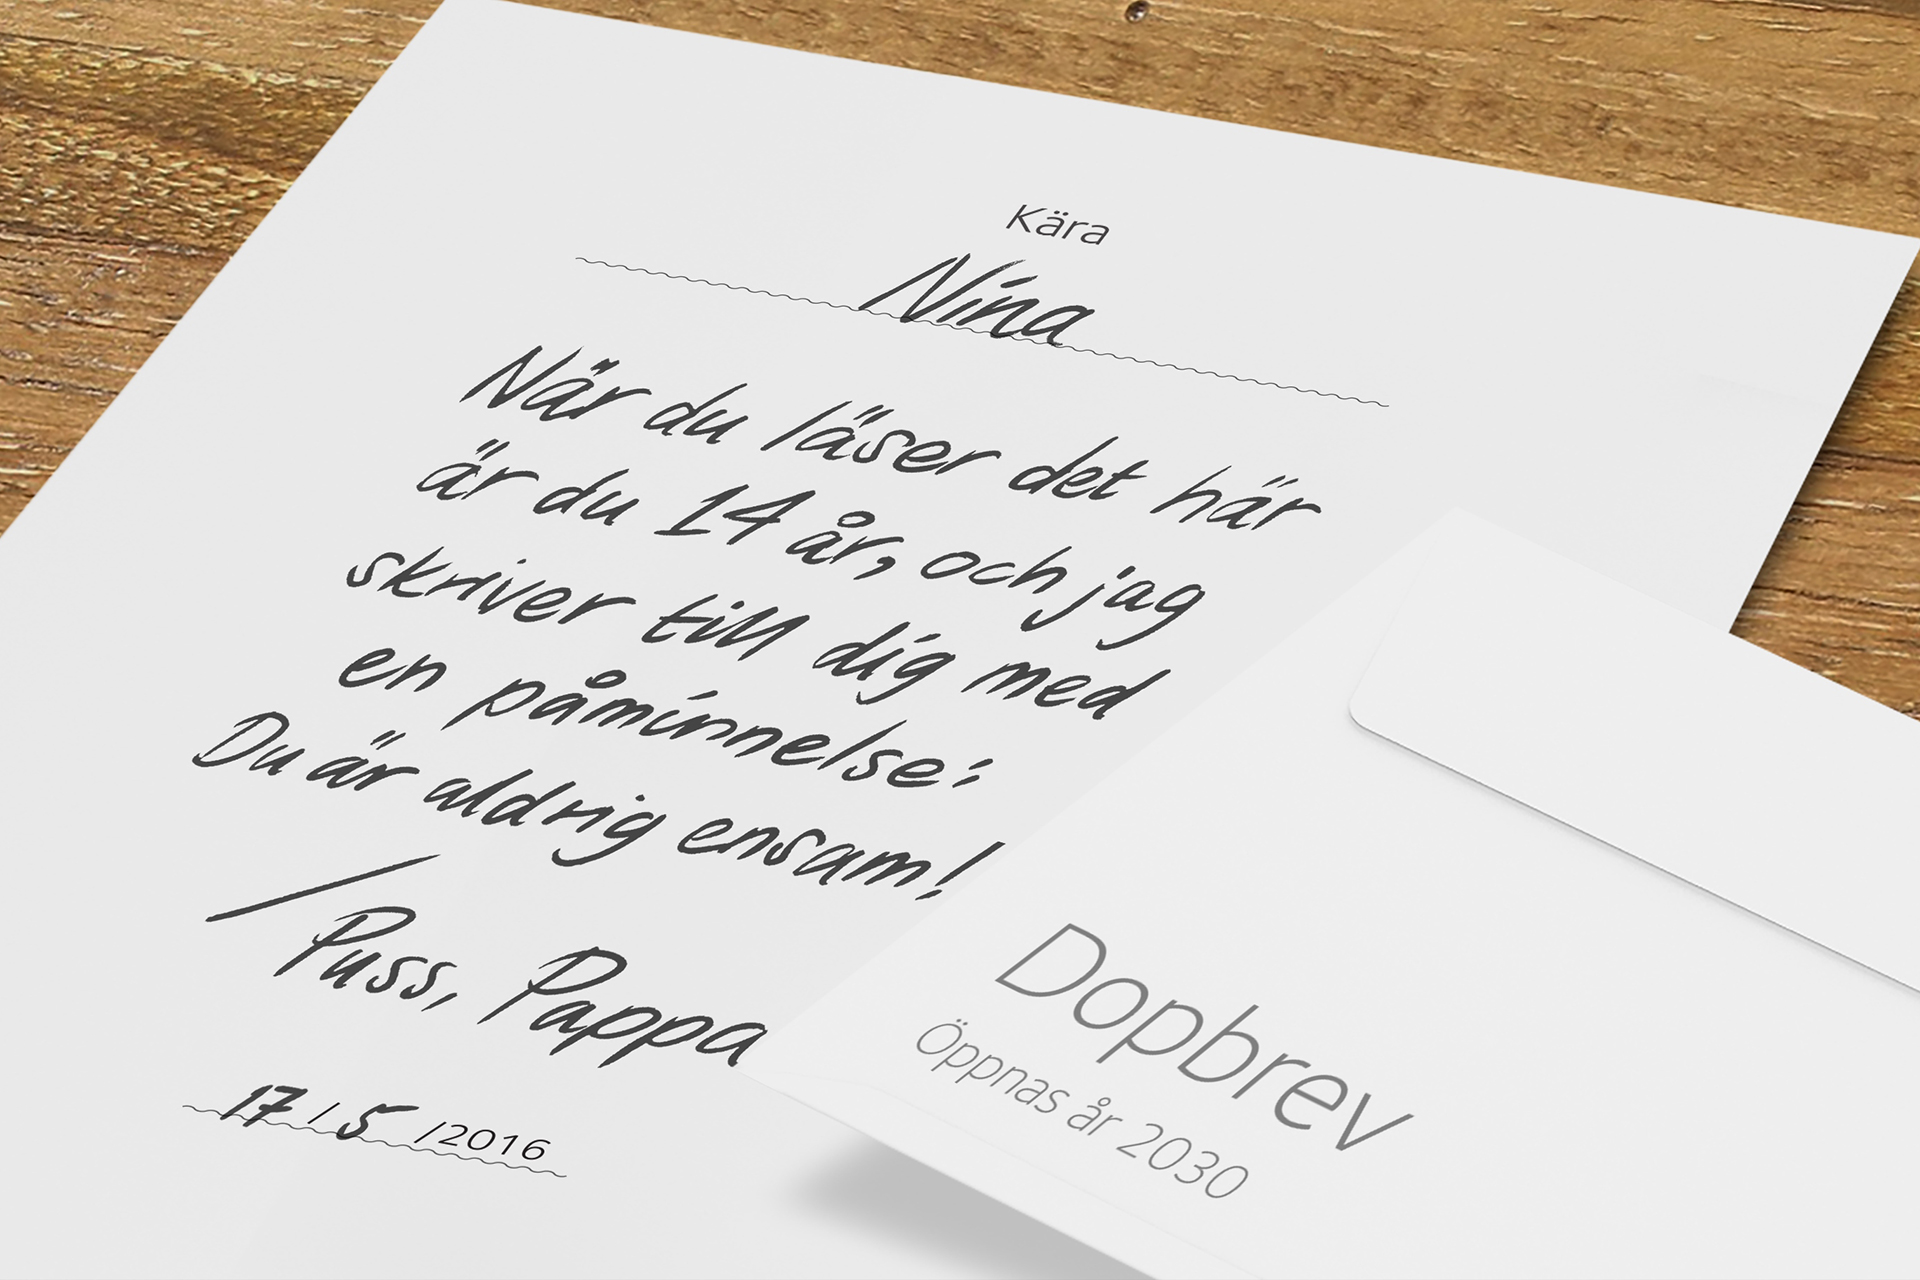 Kära
Nina
När du läser det här
är du 14 år, och jag
skriver till dig med
en påminnelse:
Du är aldrig ensam!
/Puss, Pappa
17/5/2016
Dopbrev
Öppnas år 2030